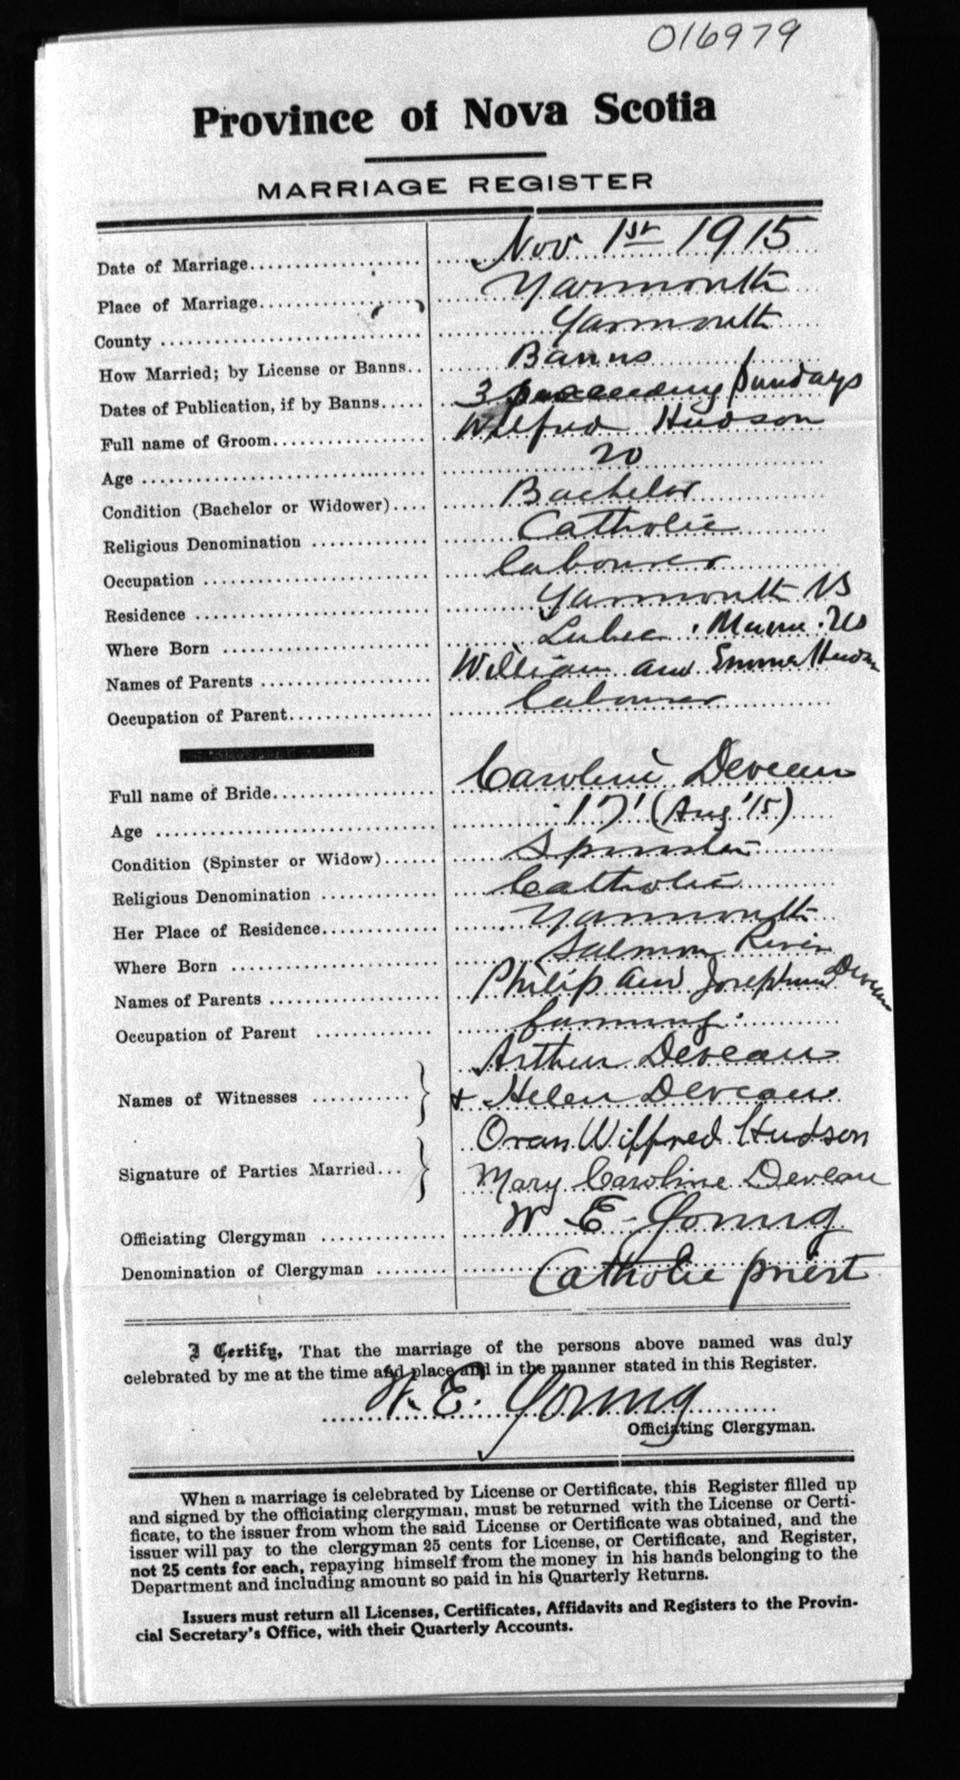 016979
Province of Nova Scotia
MARRIAGE REGISTER
Date of Marriage.................... Nov 1st 1915
Place of Marriage.................... Yarmouth
County .................... Yarmouth
How Married; by License or Banns.. Banns
Dates of Publication, if by Banns..... 3 succeeding Sundays
Full name of Groom.................... Wilfred Hudson
Age .................... 20
Condition (Bachelor or Widower).... Bachelor
Religious Denomination ............ Catholic
Occupation .................... labourer
Residence .................... Yarmouth NS
Where Born .................... Lubec, Maine. US
Names of Parents .................... William and Emma Hudson
Occupation of Parent.................... labourer
Full name of Bride.................... Caroline Deveau
Age .................... 17 (Aug '15)
Condition (Spinster or Widow)...... Spinster
Religious Denomination ............ Catholic
Her Place of Residence............ Yarmouth
Where Born .................... Salmon River
Names of Parents .................... Philip and Josephine Deveau
Occupation of Parent ............ farming.
Arthur Deveau
Names of Witnesses .......... & Helen Deveau
Oran Wilfred Hudson
Signature of Parties Married... Mary Caroline Deveau
Officiating Clergyman ............ W E Young
Denomination of Clergyman ........ Catholic priest
I Certify, That the marriage of the persons above named was duly
celebrated by me at the time and place and in the manner stated in this Register.
W. E. Young
Officiating Clergyman.
When a marriage is celebrated by License or Certificate, this Register filled up
and signed by the officiating clergyman, must be returned with the License or Certi-
ficate, to the issuer from whom the said License or Certificate was obtained, and the
issuer will pay to the clergyman 25 cents for License, or Certificate, and Register,
not 25 cents for each, repaying himself from the money in his hands belonging to the
Department and including amount so paid in his Quarterly Returns.
Issuers must return all Licenses, Certificates, Affidavits and Registers to the Provin-
cial Secretary's Office, with their Quarterly Accounts.